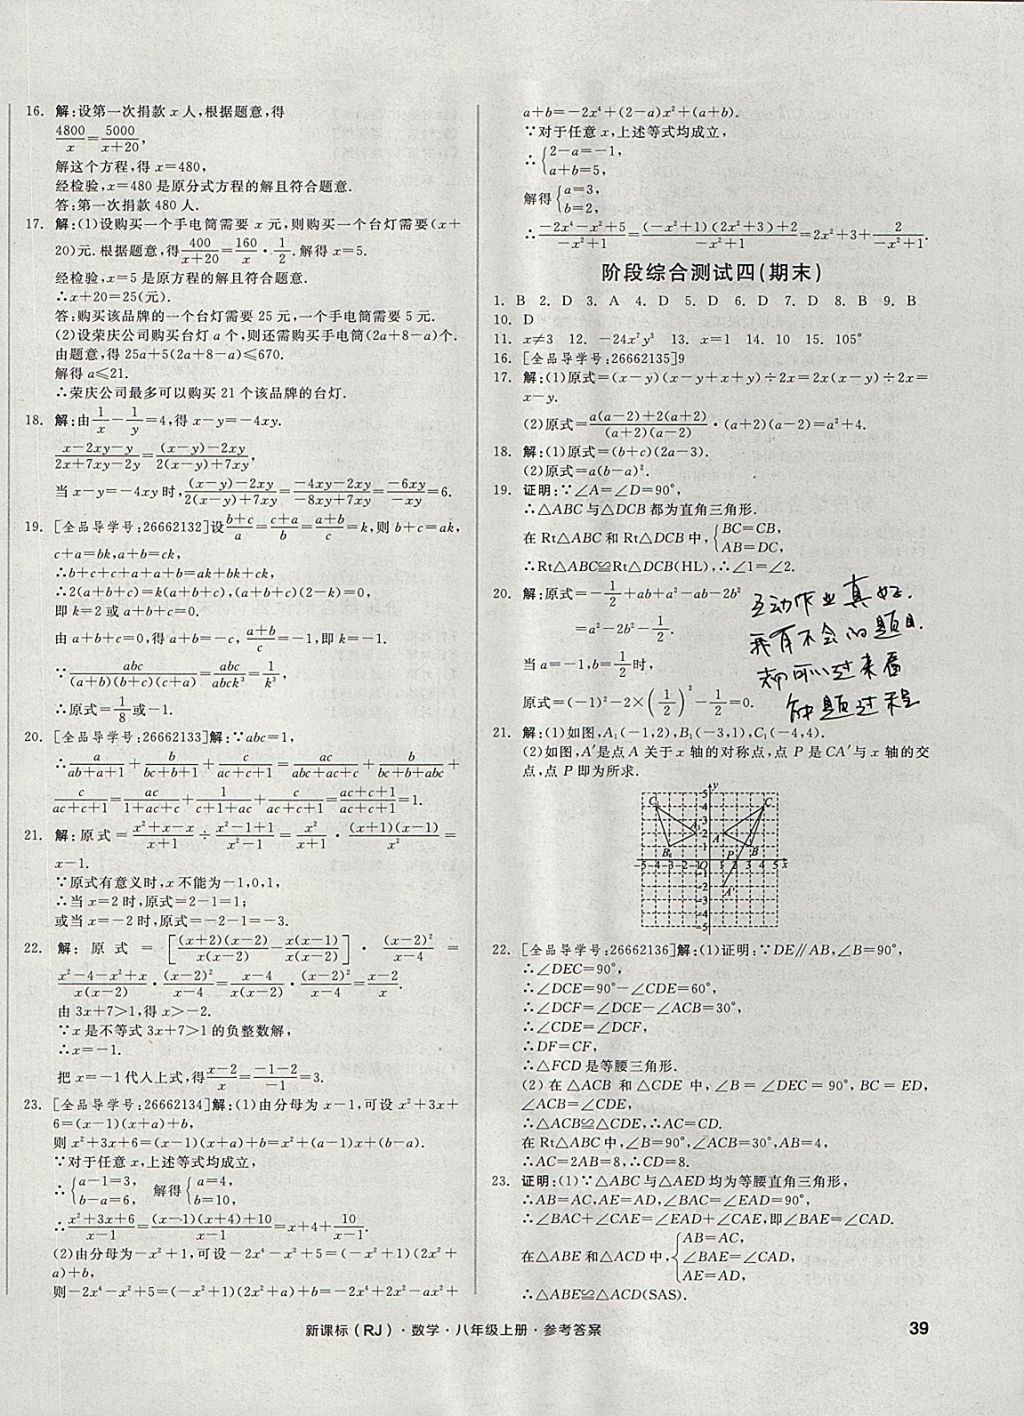 16. 解:设第一次捐款 x 人,根据题意,得
4800/x=5000/(x+20),
解这个方程,得 x=480,
经检验,x=480 是原分式方程的解且符合题意.
答:第一次捐款 480 人.
17. 解:(1)设购买一个手电筒需要 x 元,则购买一个台灯需要(x+
20)元.根据题意,得400/(x+20)=160/x·1/2.解得 x=5.
经检验,x=5 是原方程的解且符合题意.
∴x+20=25(元).
答:购买该品牌的一个台灯需要 25 元,一个手电筒需要 5 元.
(2)设荣庆公司购买台灯 a 个,则还需购买手电筒(2a+8-a)个.
由题意,得 25a+5(2a+8-a)≤670.
解得 a≤21.
∴荣庆公司最多可以购买 21 个该品牌的台灯.
18. 解:由1/x-1/y=4,得 x-y=-4xy.
(x-2xy-y)/(2x+7xy-2y)=((x-y)-2xy)/(2(x-y)+7xy),
当 x-y=-4xy 时,((x-y)-2xy)/(2(x-y)+7xy)=(-4xy-2xy)/(-8xy+7xy)=-6xy/-xy=6.
19. [全品导学号:26662132]设(b+c)/a=(c+a)/b=(a+b)/c=k,则 b+c=ak,
c+a=bk,a+b=ck,
∴b+c+c+a+a+b=ak+bk+ck,
∴2(a+b+c)=k(a+b+c),(a+b+c)(2-k)=0,
即 k=2 或 a+b+c=0.
由 a+b+c=0,得 a+b=-c,(a+b)/c=-1,即 k=-1.
∵abc/((a+b)(b+c)(c+a))=abc/abck³=1/k³,
∴原式=1/8或-1.
20. [全品导学号:26662133]解:∵abc=1,
∴a/(ab+a+1)+b/(bc+b+1)+c/(ac+c+1)=ac/(abc+ac+c)+b/(bc+b+abc)+
c/(ac+c+1)=ac/(1+ac+c)+1/(c+1+ac)+c/(ac+c+1)=(ac+c+1)/(ac+c+1)=1.
21. 解:原式=(x²+x-x)/(x+1)÷(x²-1+1)/(x²-1)=x²/(x+1)·(x+1)(x-1)/x²=
x-1.
∵原式有意义时,x 不能为-1,0,1,
∴当 x=2 时,原式=2-1=1;
或当 x=-2 时,原式=-2-1=-3.
22. 解:原式=[(x+2)(x-2)/x(x-2)-x(x-1)/x(x-2)]·(x-2)²/(x-4)=
(x²-4-x²+x)/x(x-2)·(x-2)²/(x-4)=(x-4)/x(x-2)·(x-2)²/(x-4)=(x-2)/x.
由 3x+7>1,得 x>-2.
∵x 是不等式 3x+7>1 的负整数解,
∴x=-1.
把 x=-1代入上式,得(x-2)/x=(-1-2)/-1=3.
23. [全品导学号:26662134]解:(1)由分母为 x-1,可设 x²+3x+
6=(x-1)(x+a)+b,
则 x²+3x+6=(x-1)(x+a)+b=x²+(a-1)x+(b-a).
∵对于任意 x,上述等式均成立,
∴{a-1=3, b-a=6, 解得{a=4, b=10,
∴(x²+3x+6)/(x-1)=((x-1)(x+4)+10)/(x-1)=x+4+10/(x-1).
(2)由分母为-x²+1,可设-2x⁴-x²+5=(-x²+1)(2x²+
a)+b,
则-2x⁴-x²+5=(-x²+1)(2x²+a)+b=-2x⁴+2x²-ax²+
a+b=-2x⁴+(2-a)x²+(a+b).
∵对于任意 x,上述等式均成立,
∴{2-a=-1, a+b=5,
解得{a=3, b=2,
∴(-2x⁴-x²+5)/(-x²+1)=((-x²+1)(2x²+3)+2)/(-x²+1)=2x²+3+2/(-x²+1).
阶段综合测试四(期末)
1. B 2. D 3. A 4. D 5. D 6. D 7. D 8. B 9. B
10. D
11. x≠3 12. -24x⁷y³ 13. x=1 14. 10 15. 105°
16. [全品导学号:26662135]9
17. 解:(1)原式=(x-y)(x-y+x+y)÷2x=2x(x-y)÷2x=
x-y.
(2)原式=(a(a-2)+2(a+2))/((a+2)(a-2))·(a+2)(a-2)=a²+4.
18. 解:(1)原式=(b+c)(2a-3).
(2)原式=a(b-a)².
19. 证明:∵∠A=∠D=90°,
∴△ABC与△DCB 都为直角三角形.
在 Rt△ABC 和 Rt△DCB 中,{BC=CB, AB=DC,
∴Rt△ABC≌Rt△DCB(HL),∴∠1=∠2.
20. 解:原式=-1/2+ab+a²-ab-2b²
=a²-2b²-1/2.
当 a=-1,b=1/2时,
原式=(-1)²-2×(1/2)²-1/2=0.
互动作业真好.
我有不会的题目.
都可以过来看
解题过程
21. 解:(1)如图,A₁(-1,2),B₁(-3,1),C₁(-4,4).
(2)如图,A′是点 A 关于 x 轴的对称点,点 P 是 CA′与 x 轴的交
点,点 P 即为所求.
22. [全品导学号:26662136]解:(1)证明:∵DE∥AB,∠B=90°,
∴∠DEC=90°,
∴∠DCE=90°-∠CDE=60°,
∴∠DCF=∠DCE-∠ACB=30°,
∴∠CDE=∠DCF,
∴DF=CF,
∴△FCD 是等腰三角形.
(2)在△ACB 和△CDE 中,∠B=∠DEC=90°,BC=ED,
∠ACB=∠CDE,
∴△ACB≌△CDE,∴AC=CD.
在 Rt△ACB 中,∠B=90°,∠ACB=30°,AB=4,
∴AC=2AB=8,∴CD=8.
23. 证明:(1)∵△ABC 与△AED 均为等腰直角三角形,
∴AB=AC,AE=AD,∠BAC=∠EAD=90°,
∴∠BAC+∠CAE=∠EAD+∠CAE,即∠BAE=∠CAD.
在△ABE 和△ACD 中,{AB=AC, ∠BAE=∠CAD, AE=AD,
∴△ABE≌△ACD(SAS).
新课标(RJ)·数学·八年级上册·参考答案
39